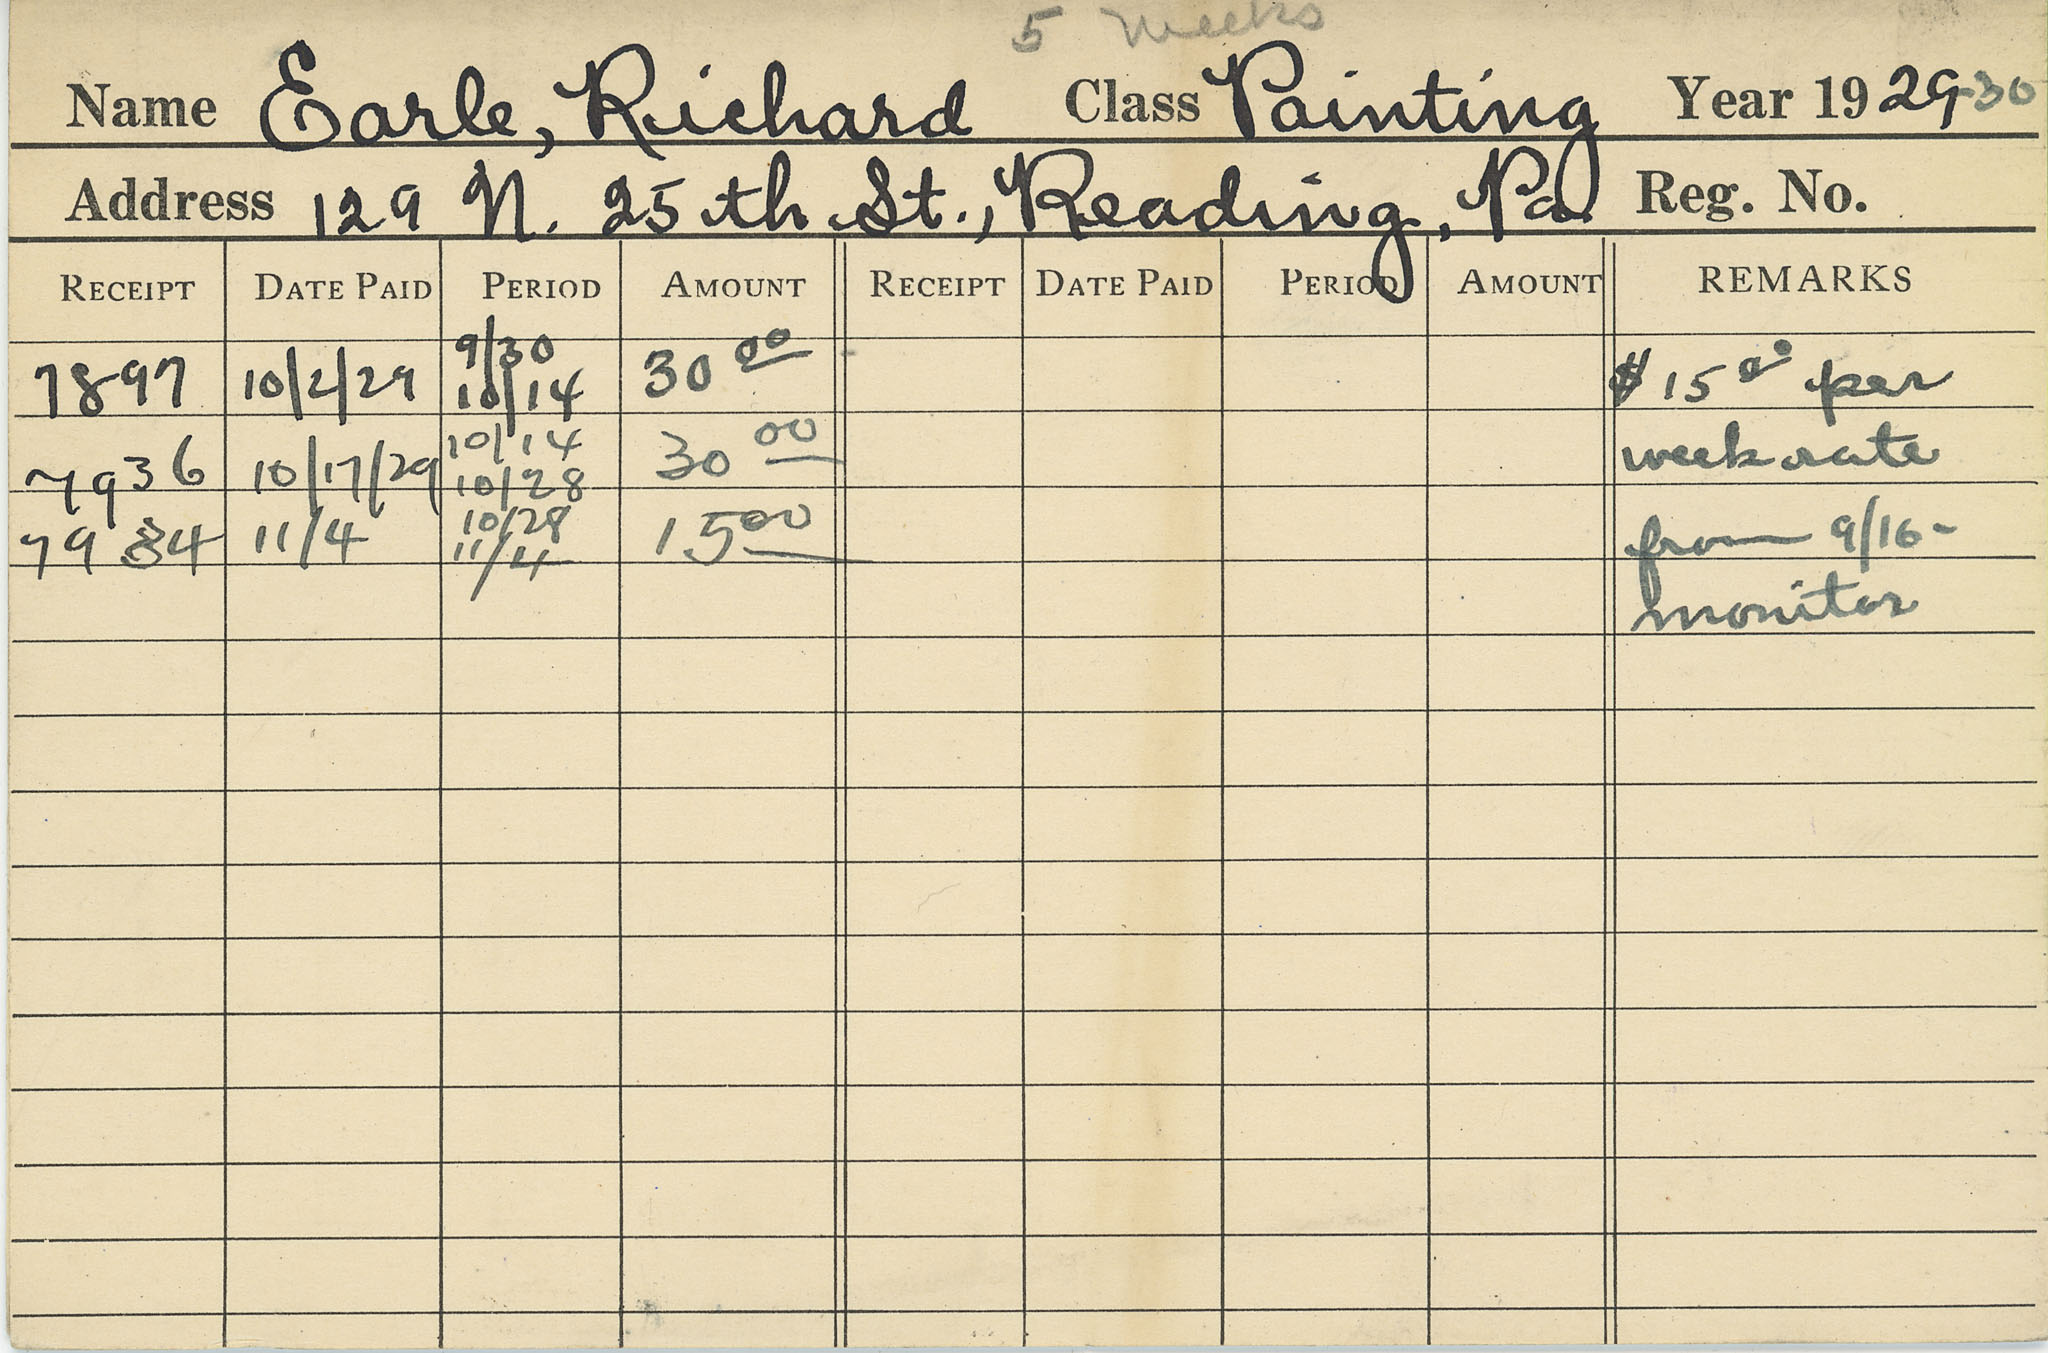 5 weeks
Name Earle, Richard Class Painting Year 1929-30
Address 129 N. 25th St., Reading, Pa. Reg. No.
RECEIPT DATE PAID PERIOD AMOUNT RECEIPT DATE PAID PERIOD AMOUNT REMARKS
7897 10/2/29 9/30 10/14 30 00 $15 00 per
7936 10/17/29 10/14 10/28 30 00 week rate
11/4 10/28 11/4 15 00 from 9/16-
monitor